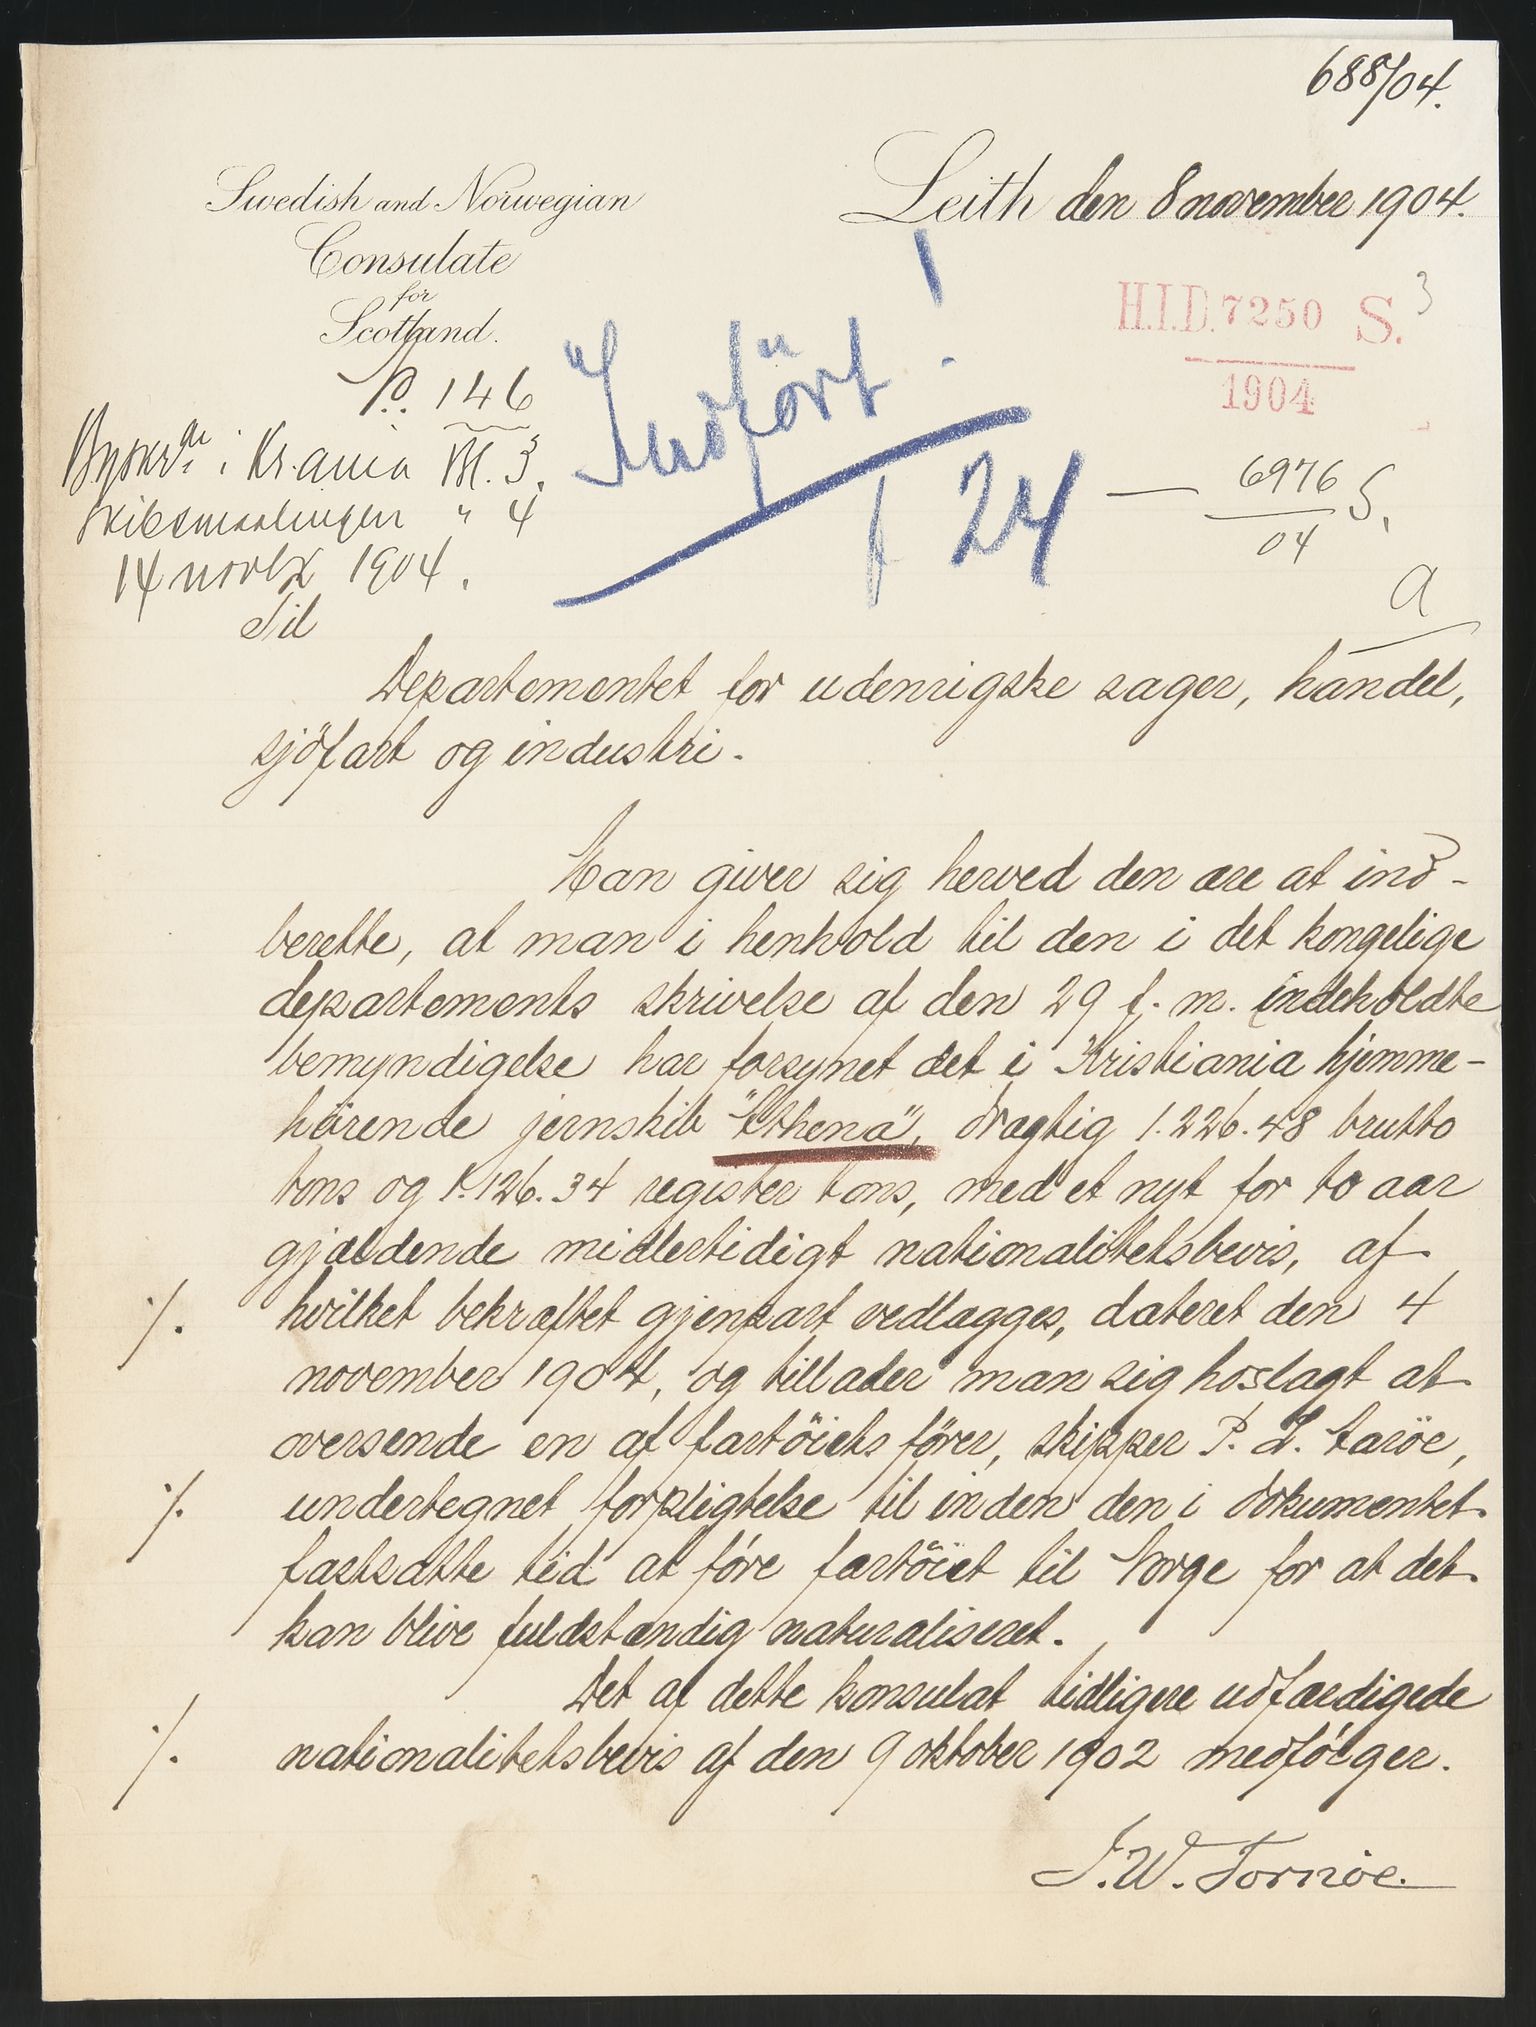 688/04.
Swedish and Norwegian
Consulate
for
Scotland.
No. 146
Leith den 8 november 1904.
H.I.D. 7250 S. 3
1904
Indført!
f 24
— 6976 S.
04
a
i Kr.ania Bl. 3.
Skibsmaalingen " 4
14 novbr 1904.
Til
Departementet for udenrigske sager, handel,
sjöfart og industri.
Man giver sig herved den ære at ind-
berette, at man i henhold til den i det kongelige
departements skrivelse af den 29 f. m. indeholdte
bemyndigelse har forsynet det i Kristiania hjemme-
hörende jernskib "Athena", drægtig 1.226.48 brutto
tons og 1.126.34 register tons, med et nyt for to aar
gjældende midlertidigt nationalitetsbevis, af
./. hvilket bekræftet gjenpart vedlægges, dateret den 4
november 1904, og tillader man sig hoslagt at
oversende en af fartöiets förer, skipper P. L. Taröe,
./. undertegnet forpligtelse til inden den i dokumentet
fastsatte tid at före fartöiet til Norge for at det
kan blive fuldstændig naturaliseret.
Det af dette konsulat tidligere udfærdigede
./. nationalitetsbevis af den 9 oktober 1902 medfölger.
J. W. Tornöe.